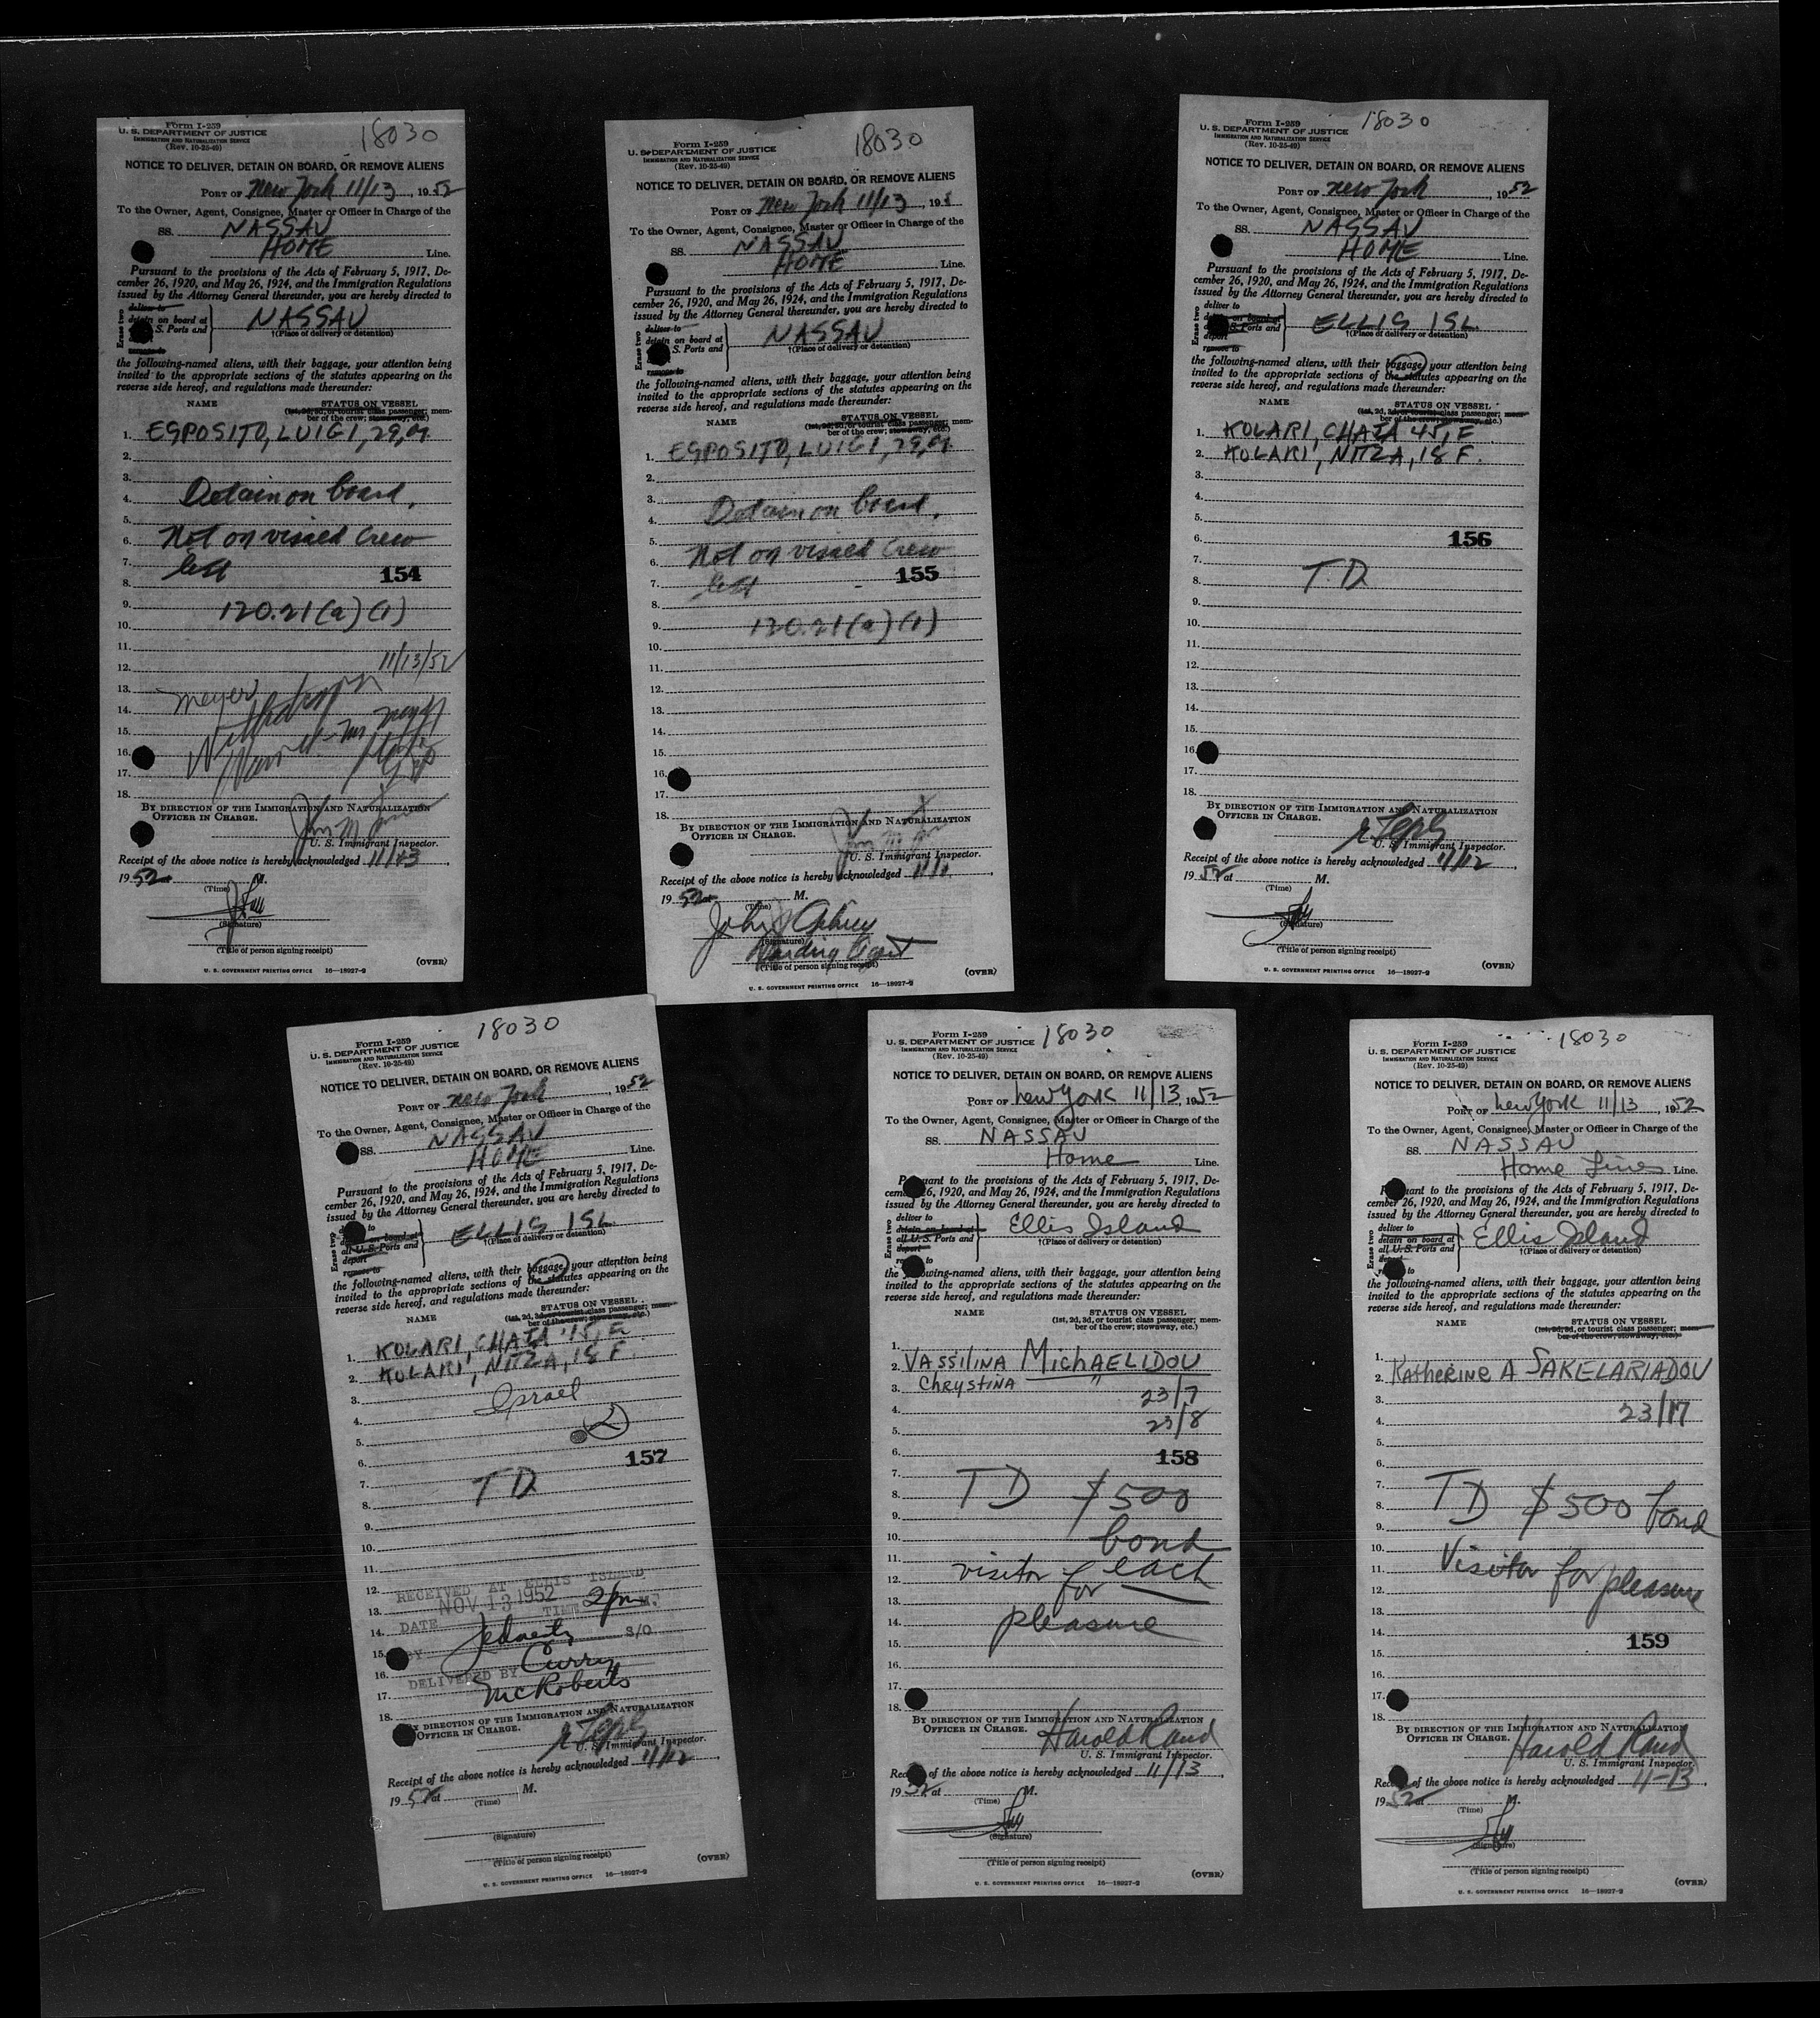 Form I-259
18030
U. S. DEPARTMENT OF JUSTICE
IMMIGRATION AND NATURALIZATION SERVICE
(Rev. 10-25-49)
NOTICE TO DELIVER, DETAIN ON BOARD, OR REMOVE ALIENS
PORT OF New York 11/13, 1952
To the Owner, Agent, Consignee, Master or Officer in Charge of the
SS. NASSAU
HOME Line.
Pursuant to the provisions of the Acts of February 5, 1917, De-
cember 26, 1920, and May 26, 1924, and the Immigration Regulations
issued by the Attorney General thereunder, you are hereby directed to
Erase two
deliver to
detain on board at
S. Ports and
remove to
NASSAU
†(Place of delivery or detention)
the following-named aliens, with their baggage, your attention being
invited to the appropriate sections of the statutes appearing on the
reverse side hereof, and regulations made thereunder:
NAME STATUS ON VESSEL
(1st, 2d, 3d, or tourist class passenger; mem-
ber of the crew; stowaway, etc.)
1. ESPOSITO, LUIGI, 29, M
2.
3.
4. Detain on board,
5.
6. Not on visaed Crew
7. list 154
8.
9. 120.21(a)(1)
10.
11.
12. 11/13/52
13. Meyer
14.
15.
16.
17.
18.
BY DIRECTION OF THE IMMIGRATION AND NATURALIZATION
OFFICER IN CHARGE.
U. S. Immigrant Inspector.
Receipt of the above notice is hereby acknowledged 11/13,
1952 M.
(Time)
(Signature)
(Title of person signing receipt)
(OVER)
U. S. GOVERNMENT PRINTING OFFICE 16—18927-2
Form I-259
18030
U. S. DEPARTMENT OF JUSTICE
IMMIGRATION AND NATURALIZATION SERVICE
(Rev. 10-25-49)
NOTICE TO DELIVER, DETAIN ON BOARD, OR REMOVE ALIENS
PORT OF New York 11/13, 195
To the Owner, Agent, Consignee, Master or Officer in Charge of the
SS. NASSAU
HOME Line.
Pursuant to the provisions of the Acts of February 5, 1917, De-
cember 26, 1920, and May 26, 1924, and the Immigration Regulations
issued by the Attorney General thereunder, you are hereby directed to
Erase two
deliver to
detain on board at
S. Ports and
remove to
NASSAU
†(Place of delivery or detention)
the following-named aliens, with their baggage, your attention being
invited to the appropriate sections of the statutes appearing on the
reverse side hereof, and regulations made thereunder:
NAME STATUS ON VESSEL
(1st, 2d, 3d, or tourist class passenger; mem-
ber of the crew; stowaway, etc.)
1. ESPOSITO, LUIGI, 29, M
2.
3.
4. Detain on board,
5.
6. Not on visaed Crew
7. list 155
8.
9. 120.21(a)(1)
10.
11.
12.
13.
14.
15.
16.
17.
18.
BY DIRECTION OF THE IMMIGRATION AND NATURALIZATION
OFFICER IN CHARGE.
U. S. Immigrant Inspector.
Receipt of the above notice is hereby acknowledged
1952 at M.
(Time)
John J
(Signature)
Boarding Agent
(Title of person signing receipt)
(OVER)
U. S. GOVERNMENT PRINTING OFFICE 16—18927-2
Form I-259
18030
U. S. DEPARTMENT OF JUSTICE
IMMIGRATION AND NATURALIZATION SERVICE
(Rev. 10-25-49)
NOTICE TO DELIVER, DETAIN ON BOARD, OR REMOVE ALIENS
PORT OF New York, 1952
To the Owner, Agent, Consignee, Master or Officer in Charge of the
SS. NASSAU
HOME Line.
Pursuant to the provisions of the Acts of February 5, 1917, De-
cember 26, 1920, and May 26, 1924, and the Immigration Regulations
issued by the Attorney General thereunder, you are hereby directed to
Erase two
deliver to
detain on board at
S. Ports and
deport
remove to
ELLIS ISL.
†(Place of delivery or detention)
the following-named aliens, with their baggage, your attention being
invited to the appropriate sections of the statutes appearing on the
reverse side hereof, and regulations made thereunder:
NAME STATUS ON VESSEL
(1st, 2d, 3d, or tourist class passenger; mem-
ber of the crew; stowaway, etc.)
1. KOLARI, CHAJA 45, F.
2. KOLARI, NITZA, 18 F.
3.
4.
5.
6. 156
7.
8. T.D.
9.
10.
11.
12.
13.
14.
15.
16.
17.
18.
BY DIRECTION OF THE IMMIGRATION AND NATURALIZATION
OFFICER IN CHARGE.
U. S. Immigrant Inspector.
Receipt of the above notice is hereby acknowledged 11/12,
1952 at M.
(Time)
(Signature)
(Title of person signing receipt)
(OVER)
U. S. GOVERNMENT PRINTING OFFICE 16—18927-2
Form I-259
18030
U. S. DEPARTMENT OF JUSTICE
IMMIGRATION AND NATURALIZATION SERVICE
(Rev. 10-25-49)
NOTICE TO DELIVER, DETAIN ON BOARD, OR REMOVE ALIENS
PORT OF New York, 1952
To the Owner, Agent, Consignee, Master or Officer in Charge of the
SS. NASSAU
HOME Line.
Pursuant to the provisions of the Acts of February 5, 1917, De-
cember 26, 1920, and May 26, 1924, and the Immigration Regulations
issued by the Attorney General thereunder, you are hereby directed to
Erase two
to
detain on board at
all U. S. Ports and
deport
remove to
ELLIS ISL.
†(Place of delivery or detention)
the following-named aliens, with their baggage, your attention being
invited to the appropriate sections of the statutes appearing on the
reverse side hereof, and regulations made thereunder:
NAME STATUS ON VESSEL
(1st, 2d, 3d, or tourist class passenger; mem-
ber of the crew; stowaway, etc.)
1. KOLARI, CHAJA 45, F.
2. KOLARI, NITZA, 18 F.
3. Israel
4.
5. 2
6. 157
7.
8. T D
9.
10.
11.
12. RECEIVED AT ELLIS ISLAND
13. DATE NOV 13 1952 TIME 2 P.M.
14.
15. BY S/O
16. DELIVERED BY Curry
17. McRoberts
18.
BY DIRECTION OF THE IMMIGRATION AND NATURALIZATION
OFFICER IN CHARGE.
U. S. Immigrant Inspector.
Receipt of the above notice is hereby acknowledged 11/12,
1952 at M.
(Time)
(Signature)
(Title of person signing receipt)
(OVER)
U. S. GOVERNMENT PRINTING OFFICE 16—18927-2
Form I-259
18030
U. S. DEPARTMENT OF JUSTICE
IMMIGRATION AND NATURALIZATION SERVICE
(Rev. 10-25-49)
NOTICE TO DELIVER, DETAIN ON BOARD, OR REMOVE ALIENS
PORT OF New York 11/13, 1952
To the Owner, Agent, Consignee, Master or Officer in Charge of the
SS. NASSAU
Home Line.
Pursuant to the provisions of the Acts of February 5, 1917, De-
cember 26, 1920, and May 26, 1924, and the Immigration Regulations
issued by the Attorney General thereunder, you are hereby directed to
Erase two
deliver to
detain on board at
all U. S. Ports and
deport
remove to
Ellis Island
†(Place of delivery or detention)
the following-named aliens, with their baggage, your attention being
invited to the appropriate sections of the statutes appearing on the
reverse side hereof, and regulations made thereunder:
NAME STATUS ON VESSEL
(1st, 2d, 3d, or tourist class passenger; mem-
ber of the crew; stowaway, etc.)
1.
2. VASSILINA MichAELIDOU
3. ChRYSTINA "
4. 23/7
5. 23/8
6. 158
7.
8. TD $500
9.
10. bond
11. each
12. visitor for
13.
14. pleasure
15.
16.
17.
18.
BY DIRECTION OF THE IMMIGRATION AND NATURALIZATION
OFFICER IN CHARGE. Harold Rand
U. S. Immigrant Inspector.
Receipt of the above notice is hereby acknowledged 11/13,
1952 at M.
(Time)
(Signature)
(Title of person signing receipt)
(OVER)
U. S. GOVERNMENT PRINTING OFFICE 16—18927-2
Form I-259
18030
U. S. DEPARTMENT OF JUSTICE
IMMIGRATION AND NATURALIZATION SERVICE
(Rev. 10-25-49)
NOTICE TO DELIVER, DETAIN ON BOARD, OR REMOVE ALIENS
PORT OF New York 11/13, 1952
To the Owner, Agent, Consignee, Master or Officer in Charge of the
SS. NASSAU
Home Lines Line.
Pursuant to the provisions of the Acts of February 5, 1917, De-
cember 26, 1920, and May 26, 1924, and the Immigration Regulations
issued by the Attorney General thereunder, you are hereby directed to
Erase two
deliver to
detain on board at
all U. S. Ports and
deport
remove to
Ellis Island
†(Place of delivery or detention)
the following-named aliens, with their baggage, your attention being
invited to the appropriate sections of the statutes appearing on the
reverse side hereof, and regulations made thereunder:
NAME STATUS ON VESSEL
(1st, 2d, 3d, or tourist class passenger; mem-
ber of the crew; stowaway, etc.)
1.
2. KatheRINe A SAKELARIADOU
3.
4. 23/17
5.
6.
7.
8. TD $500 bond
9.
10.
11. Visitor for pleasure
12.
13.
14.
15. 159
16.
17.
18.
BY DIRECTION OF THE IMMIGRATION AND NATURALIZATION
OFFICER IN CHARGE. Harold Rand
U. S. Immigrant Inspector.
Receipt of the above notice is hereby acknowledged 11-13,
1952 at M.
(Time)
(Signature)
(Title of person signing receipt)
(OVER)
U. S. GOVERNMENT PRINTING OFFICE 16—18927-2